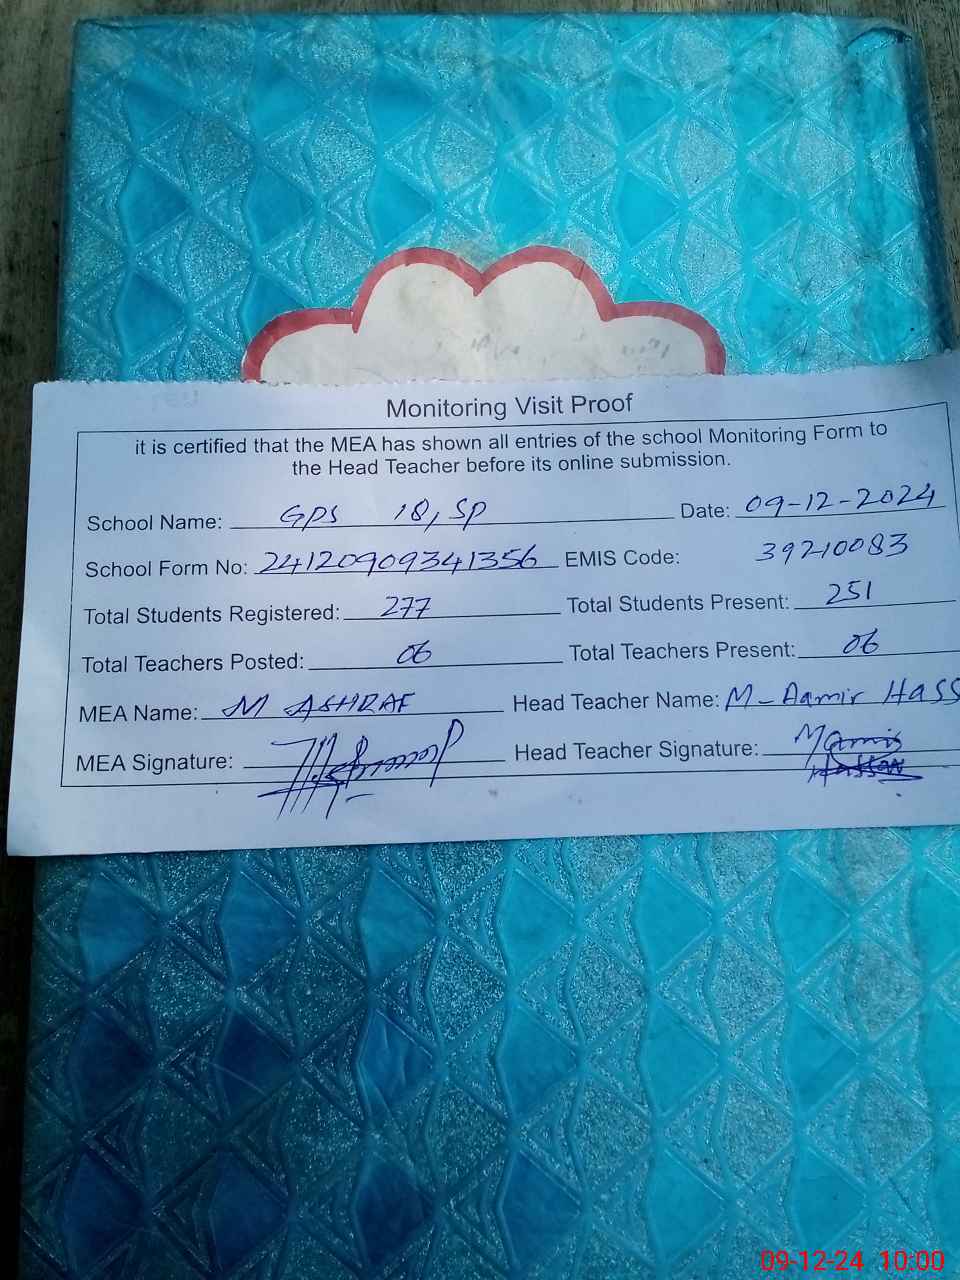 Monitoring Visit Proof
it is certified that the MEA has shown all entries of the school Monitoring Form to
the Head Teacher before its online submission.
School Name: GPS 18, SP Date: 09-12-2024
School Form No: 24120909341356 EMIS Code: 39210083
Total Students Registered: 277 Total Students Present: 251
Total Teachers Posted: 06 Total Teachers Present: 06
MEA Name: M ASHRAF Head Teacher Name: M-Aamir HASS
MEA Signature: Head Teacher Signature: Mamir
Hassan
09-12-24 10:00